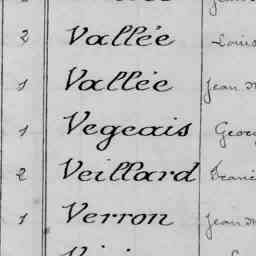 2 Vallée Louis
1 Vallée Jean
1 Vegeais Georg
2 Veillard
1 Verron Jean